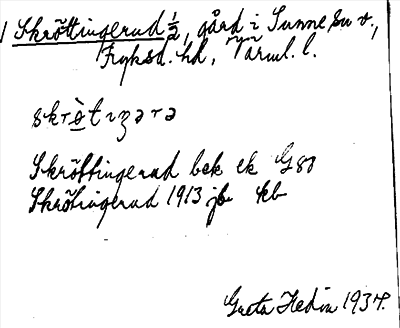 Skröttingerud ½, gård i Sunne sn o.,
Fryksd. hd, Värml. l.
skrö̀tıŋərə
Skröttingerud bek ek G80
Skrötingerud 1913 jb kb
Greta Hedin 1934.